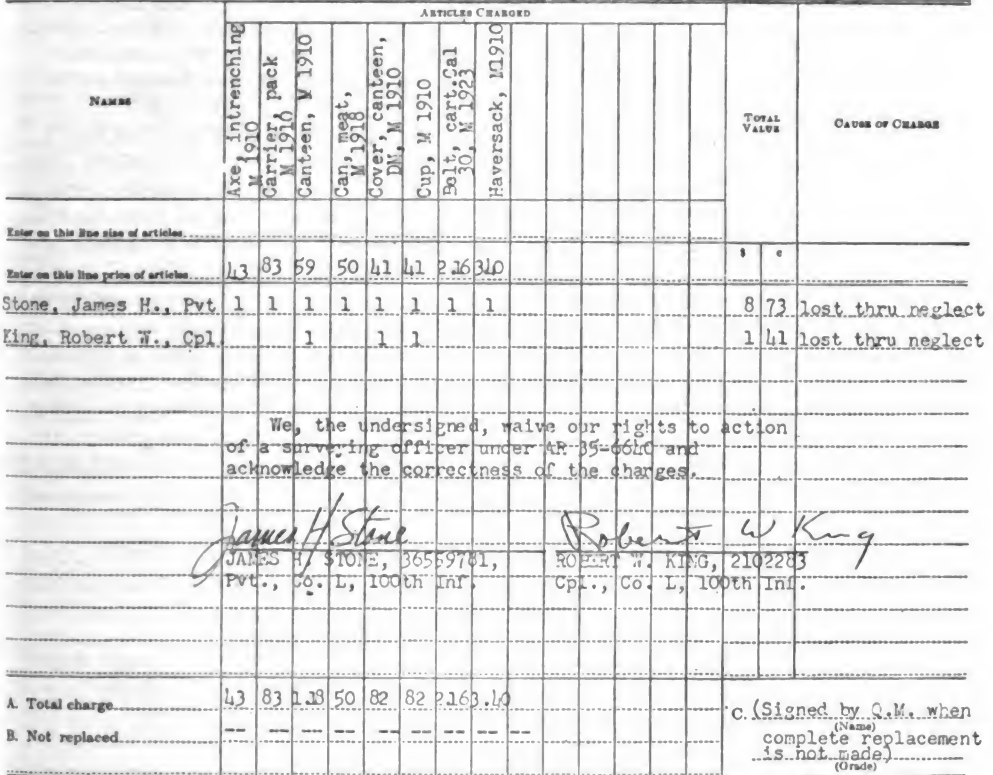 ARTICLES CHARGED
NAMES
Axe, intrenching
M 1910
Carrier, pack
M 1910
Canteen, M 1910
Can, meat,
M 1918
Cover, canteen,
DM, M 1910
Cup, M 1910
Belt, cart.Cal
30, M 1923
Haversack, M1910
TOTAL
VALUE
CAUSE OF CHARGE
Enter on this line size of articles
$ c
Enter on this line price of articles 43 83 59 50 41 41 2.16 340
Stone, James H., Pvt 1 1 1 1 1 1 1 1 8 73 lost thru neglect
King, Robert W., Cpl 1 1 1 1 41 lost thru neglect
We, the undersigned, waive our rights to action
of a surveying officer under AR 35-6640 and
acknowledge the correctness of the charges.
James H Stone Robert W King
JAMES H. STONE, 36559781, ROBERT W. KING, 2102283
Pvt., Co. L, 100th Inf. Cpl., Co. L, 100th Inf.
A. Total charge 43 83 1.18 50 82 82 2.16 3.40
B. Not replaced -- -- -- -- -- -- -- -- --
C. (Signed by Q.M. when
(Name)
complete replacement
is not made)
(Grade)